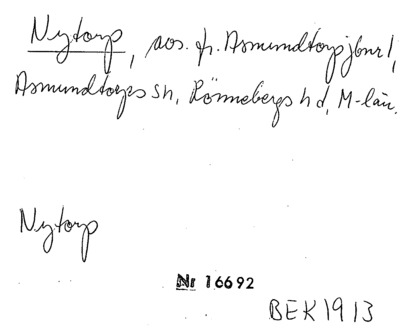 Nytorp, avs. fr. Asmundtorp jbnr 1,
Asmundtorps sn, Rönnebergs hd, M-län.
Nytorp
Nr 16692
BEK 1913